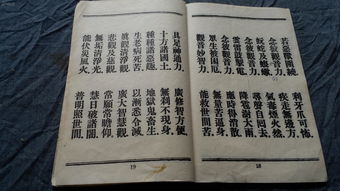 若惡獸圍繞 利牙爪可怖
念彼觀音力 疾走無邊方
蚖蛇及蝮蠍 氣毒煙火燃
念彼觀音力 尋聲自回去
雲雷鼓掣電 降雹澍大雨
念彼觀音力 應時得消散
眾生被困厄 無量苦逼身
觀音妙智力 能救世間苦
18
具足神通力 廣修智方便
十方諸國土 無刹不現身
種種諸惡趣 地獄鬼畜生
生老病死苦 以漸悉令滅
眞觀清淨觀 廣大智慧觀
悲觀及慈觀 常願常瞻仰
無垢清淨光 慧日破諸闇
能伏災風火 普明照世間
19